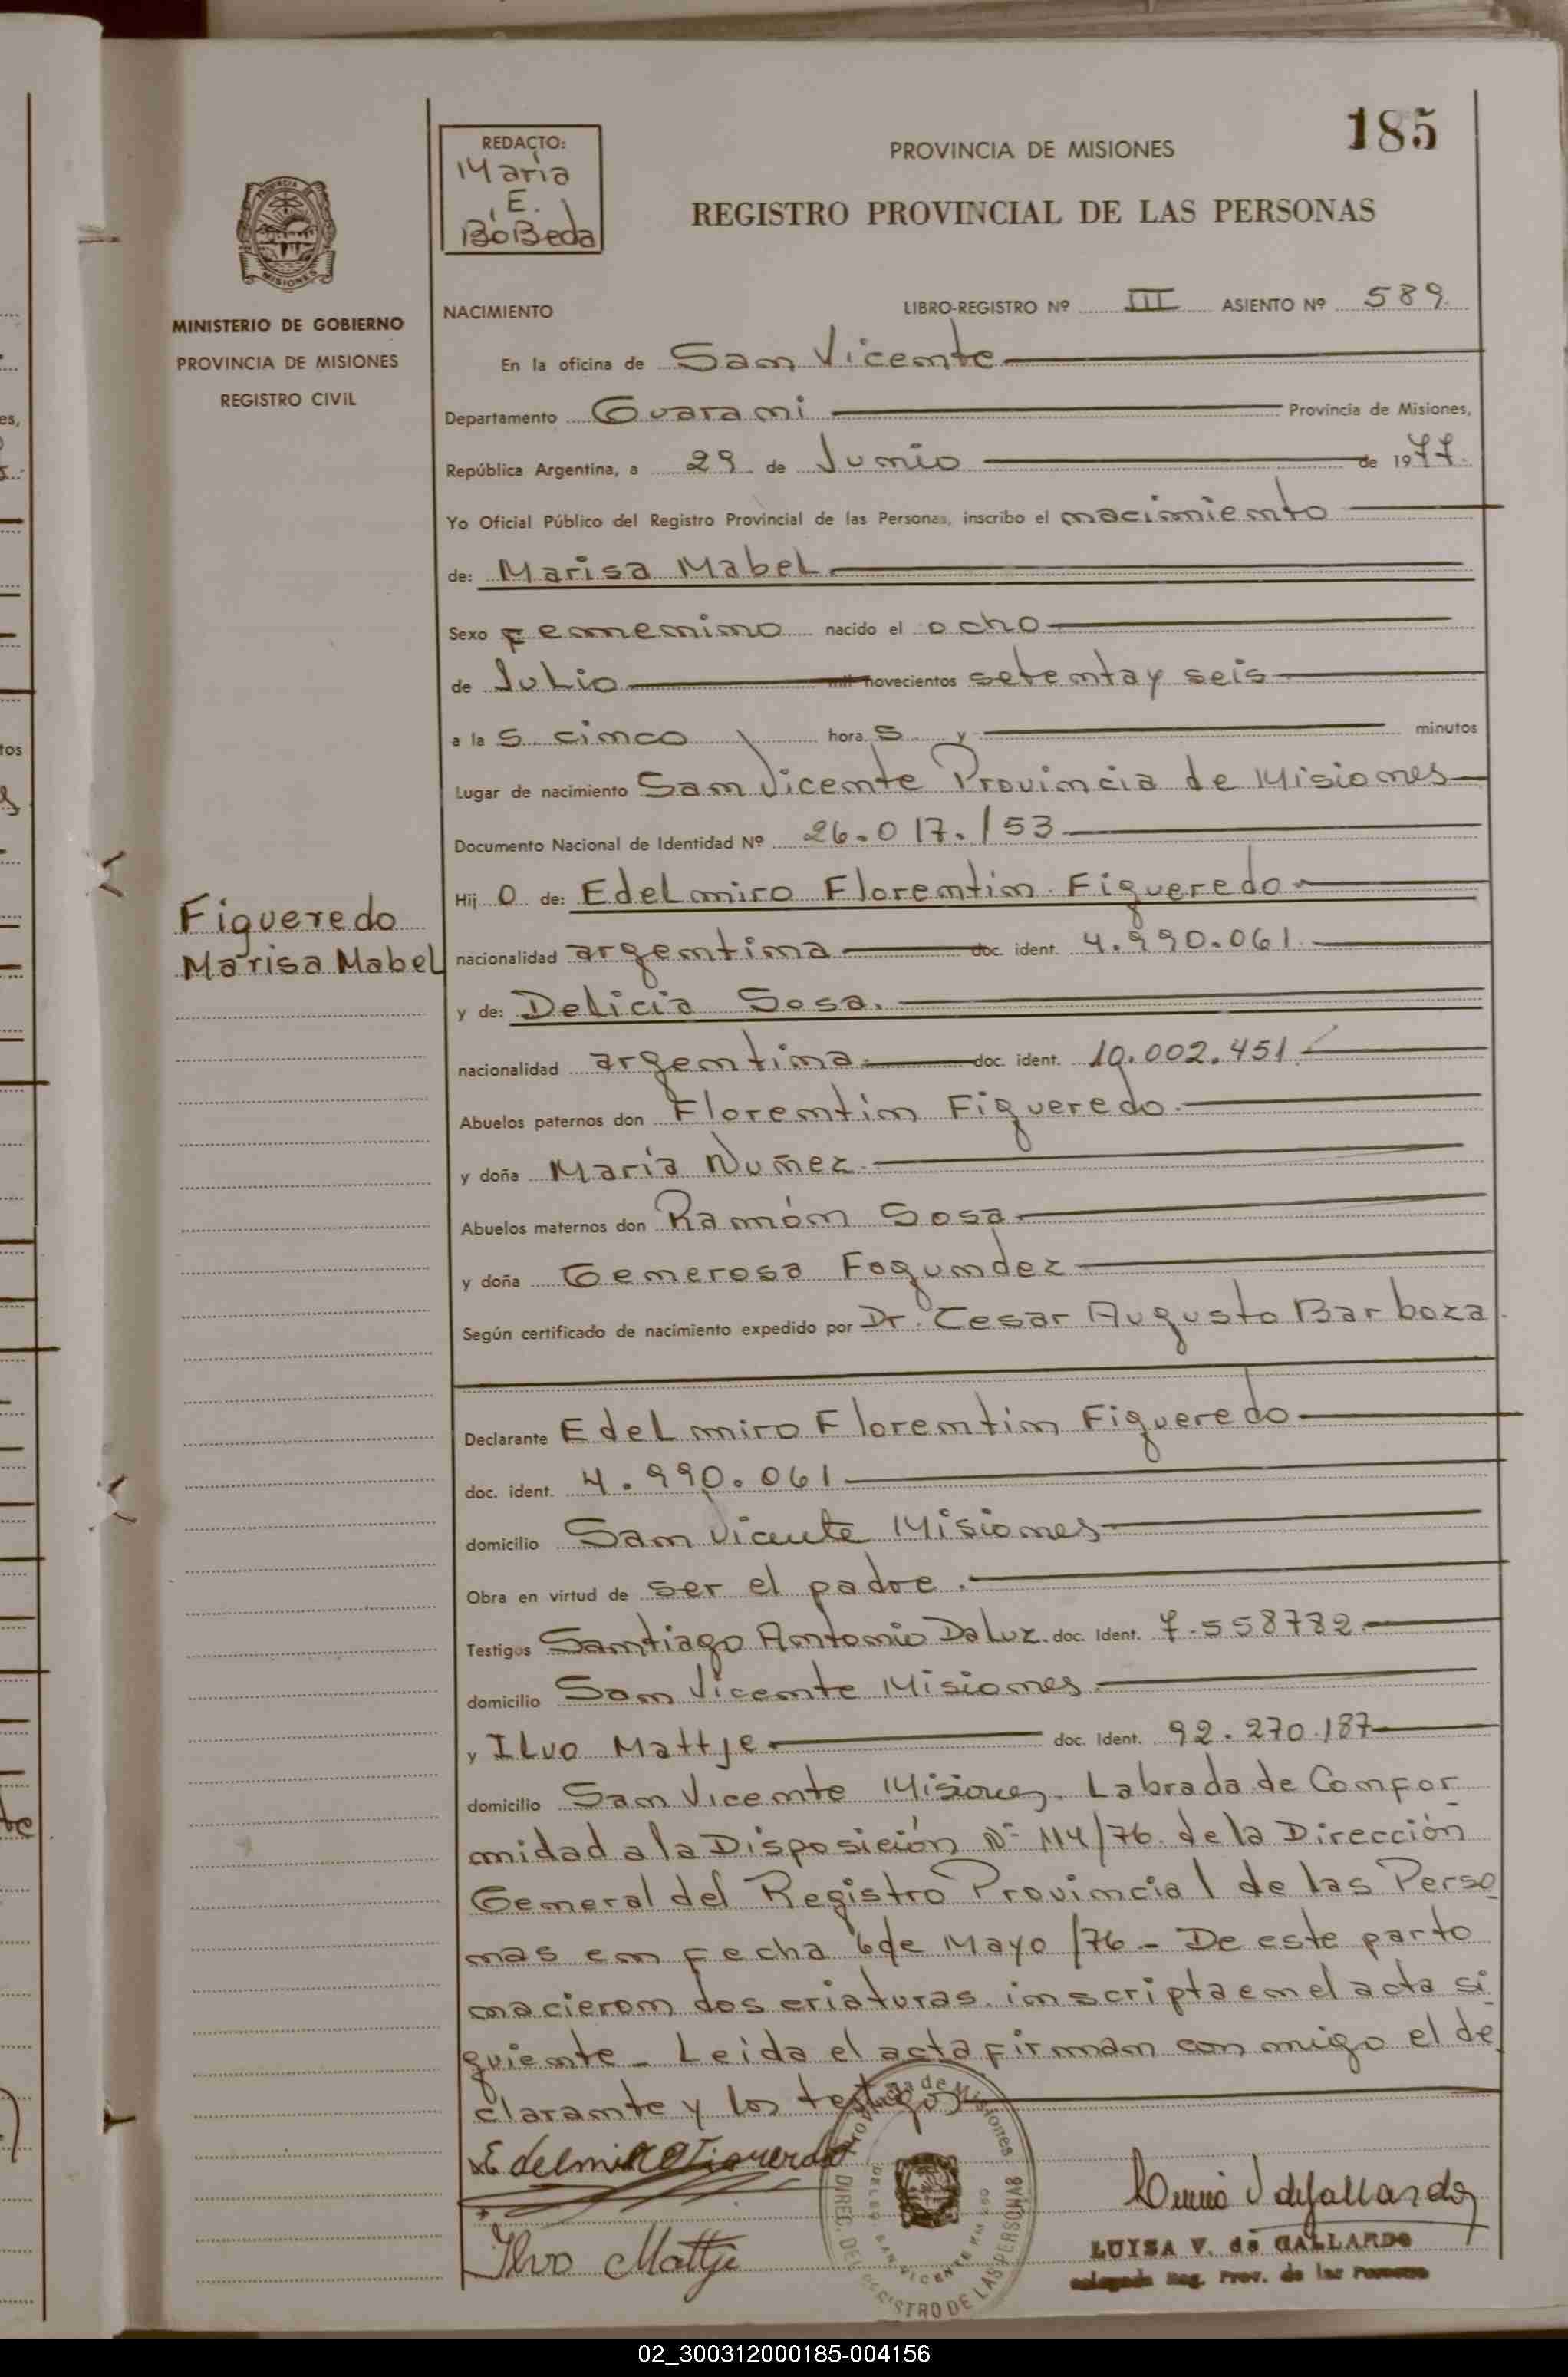 185
REDACTO:
Maria
E.
BoBeda
PROVINCIA DE MISIONES
REGISTRO PROVINCIAL DE LAS PERSONAS
PROVINCIA DE
MISIONES
MINISTERIO DE GOBIERNO
PROVINCIA DE MISIONES
REGISTRO CIVIL
NACIMIENTO LIBRO-REGISTRO Nº III ASIENTO Nº 589
En la oficina de San Vicente
Departamento Guarani Provincia de Misiones,
República Argentina, a 29 de Junio de 1977.
Yo Oficial Público del Registro Provincial de las Personas, inscribo el nacimiento
de: Marisa Mabel
Sexo Femenino nacido el ocho
de Julio mil novecientos setenta y seis
a la s cinco hora s y minutos
Lugar de nacimiento San Vicente Provincia de Misiones
Documento Nacional de Identidad Nº 26.017.153
Hij o de: Edelmiro Florentin Figueredo
nacionalidad argentina doc. ident. 4.990.061.
y de: Delicia Sosa.
nacionalidad argentina doc. ident. 10.002.451
Abuelos paternos don Florentin Figueredo
y doña Maria Nuñez
Abuelos maternos don Ramón Sosa
y doña Generosa Fagundez
Según certificado de nacimiento expedido por Dr. Cesar Augusto Barboza.
Figueredo
Marisa Mabel
Declarante Edelmiro Florentin Figueredo
doc. ident. 4.990.061
domicilio San Vicente Misiones
Obra en virtud de ser el padre.
Testigos Santiago Antonio Da Luz. doc. Ident. 7.558782
domicilio San Vicente Misiones
y Ilvo Mattje doc. Ident. 92.270.187
domicilio San Vicente Misiones. Labrada de Confor
midad a la Disposición Nº 114/76 de la Dirección
General del Registro Provincial de las Perso
nas en Fecha 6 de Mayo /76 - De este parto
nacieron dos criaturas. inscripta en el acta si
guiente - Leida el acta firman con migo el de
clarante y los testigos
Edelmiro Figueredo
Ilvo Mattje
Provincia de Misiones
DIREC. DEL REGISTRO DE LAS PERSONAS
SAN VICENTE
LUISA V. de GALLARDO
Delegada Reg. Prov. de las Personas
02_300312000185-004156